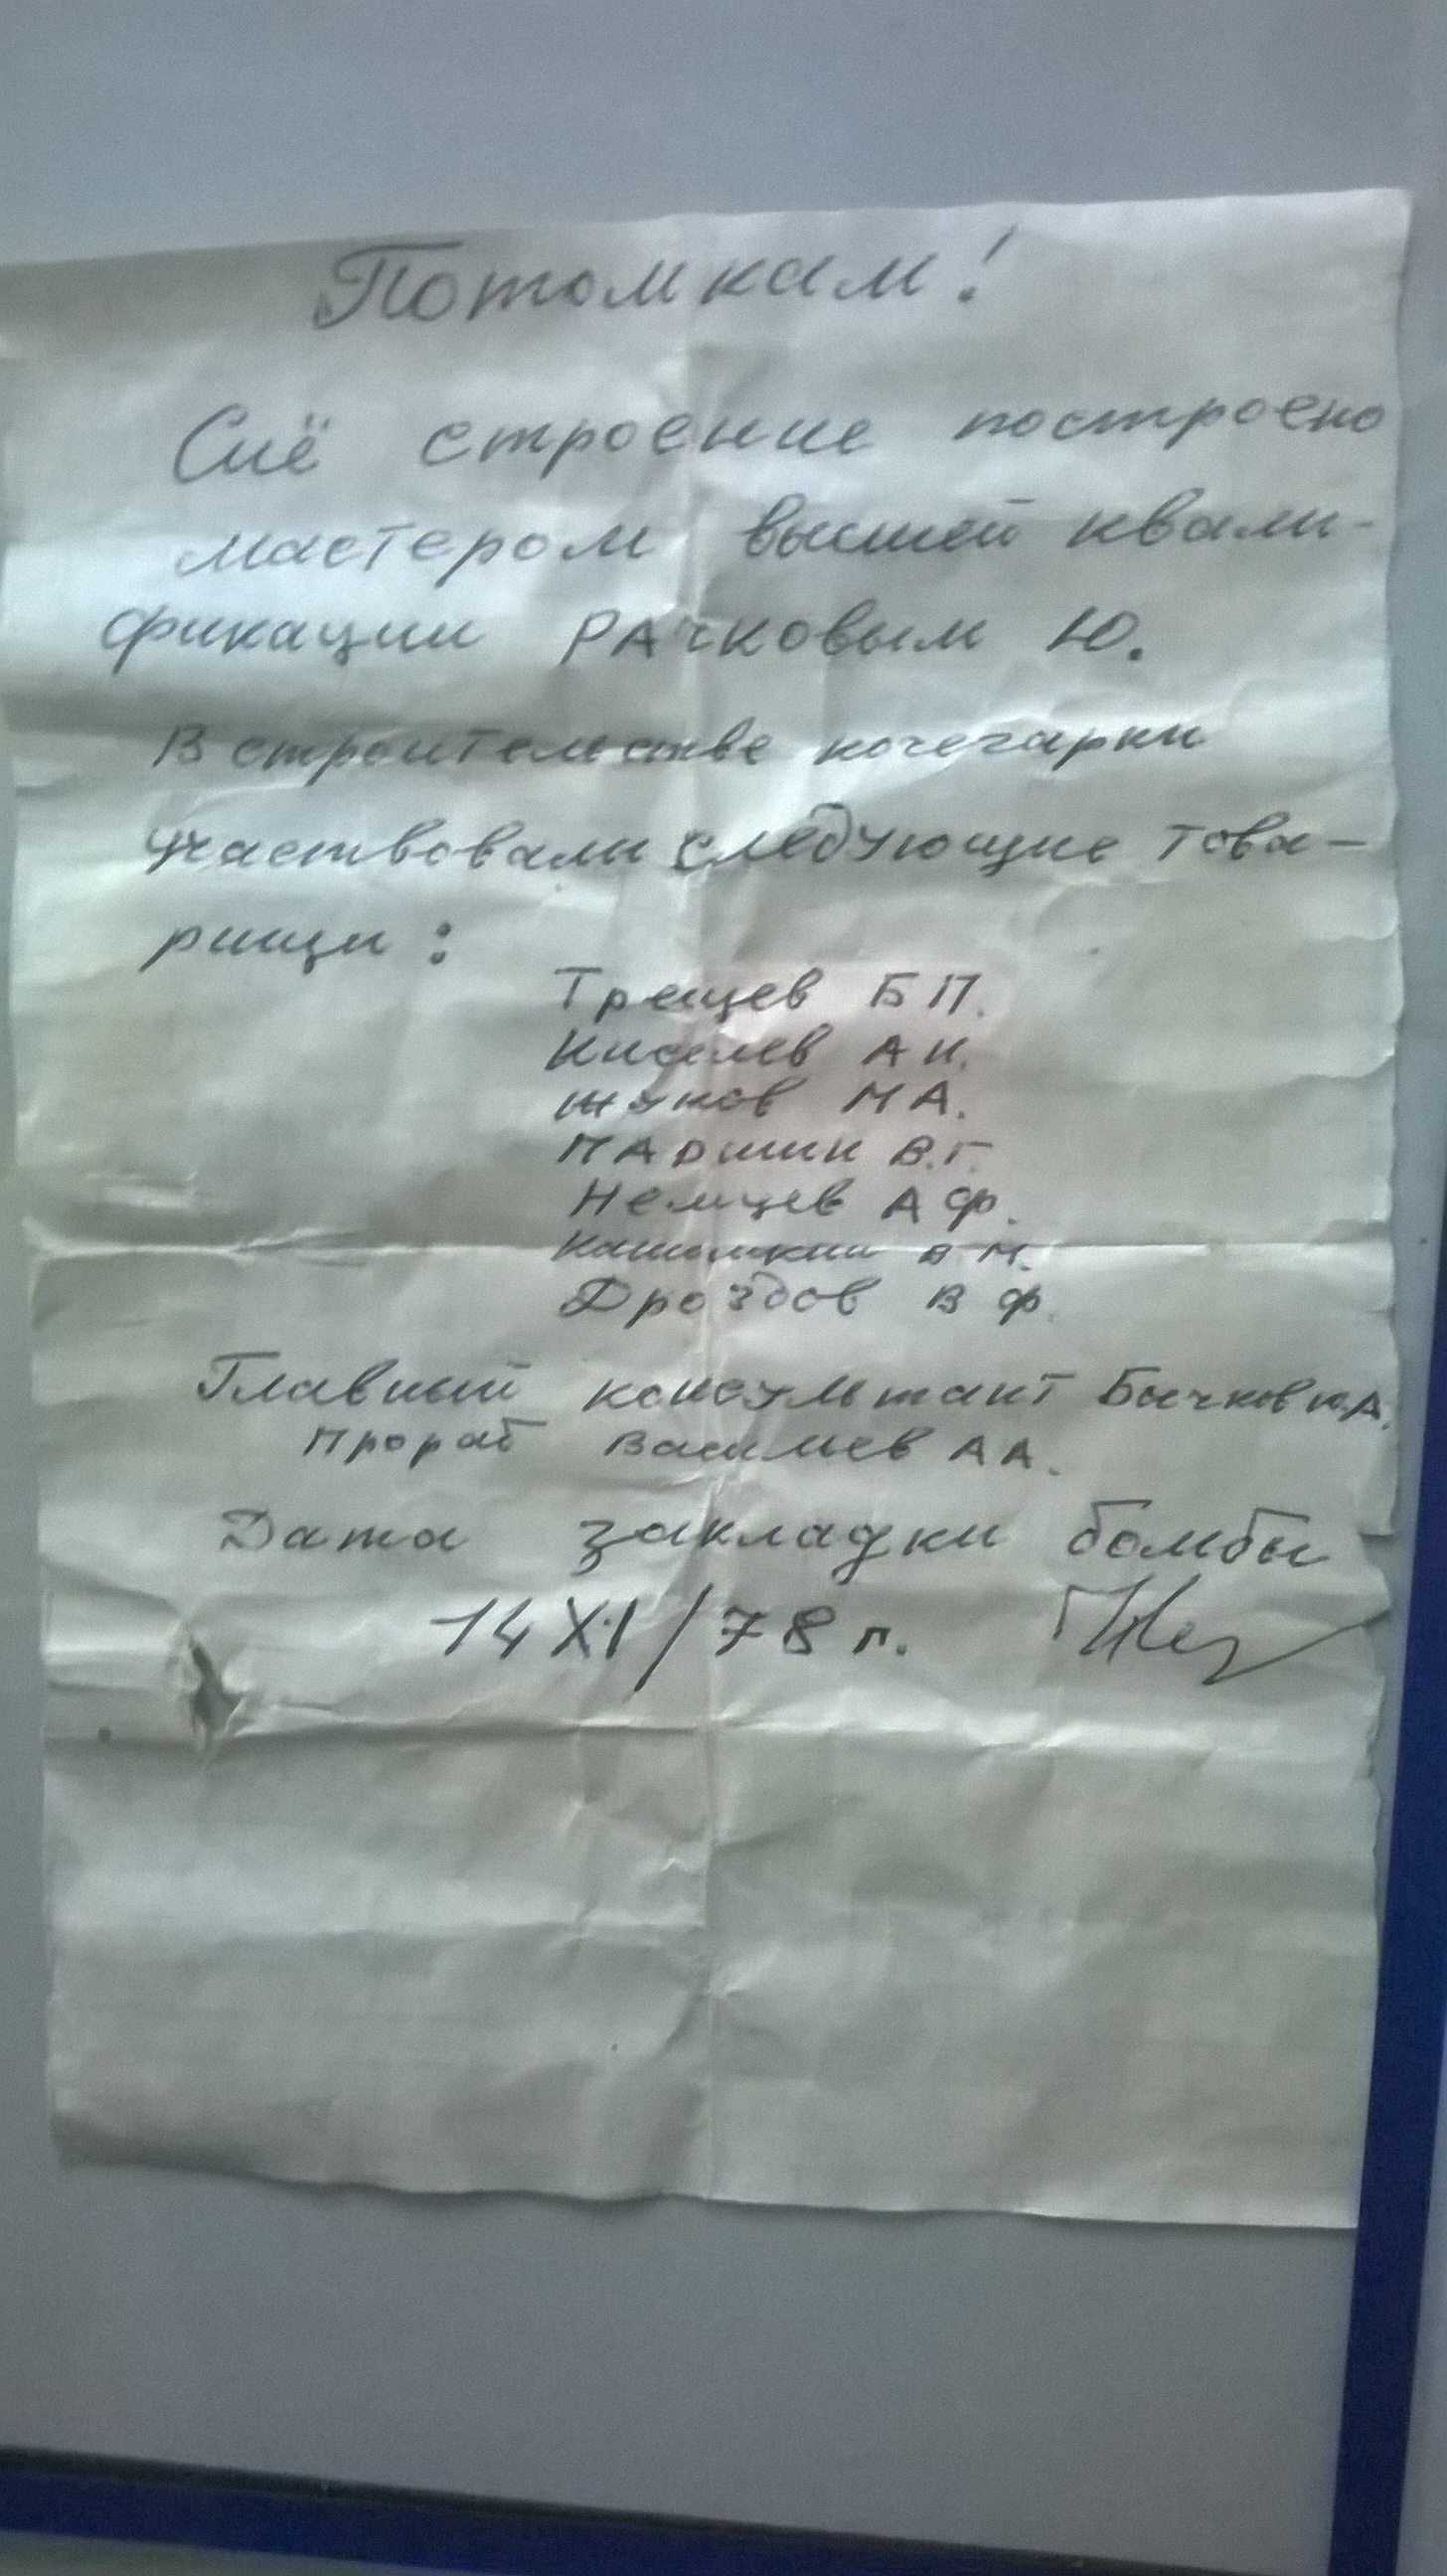 Потомкам!
Сиё строение построено
мастером высшей квали-
фикации РАЧКОВЫМ Ю.
В строительстве кочегарки
участвовали следующие това-
рищи:
Трещев Б П.
Киселев А И.
Жуков М А.
ПАРШИН В.Г.
Немцев А Ф.
В М.
Дроздов В Ф.
Главный консультант Бычков Ю.А.
Прораб Васильев А А.
Дата закладки бомбы
14 XI/78 г.